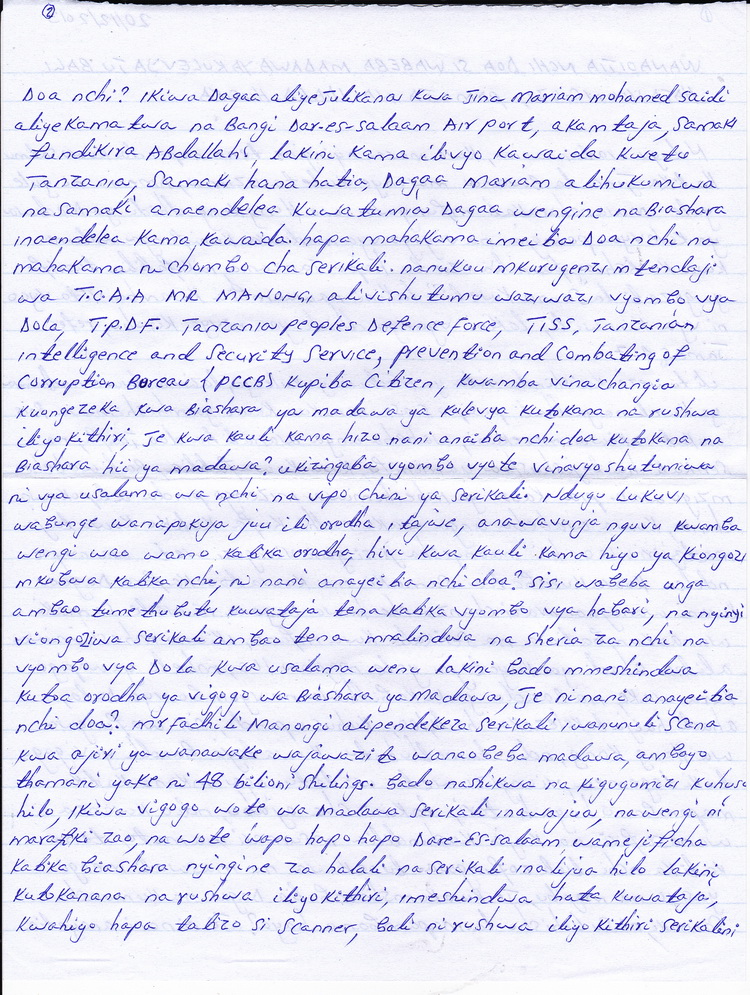 ②
Doa nchi? Ikiwa Dagaa aliyejulikana kwa jina Mariam mohamed saidi
aliyekamatwa na Bangi Dar-es-salaam Air port, akamtaja, Samaki
Fundikira Abdallahi lakini kama ilivyo kawaida kwetu
Tanzania, Samaki hana hatia, Dagaa Mariam alihukumiwa
na Samaki anaendelea kuwatumia Dagaa wengine na Biashara
inaendelea kama kawaida. hapa mahakama imeitia Doa nchi na
mahakama ni chombo cha serikali. nanukuu mkurugenzi mtendaji
wa T.C.A.A MR MANONGI alivishutumu waziwazi vyombo vya
Dola, T.P.D.F. Tanzania peoples Defence force, TISS, Tanzanian
intelligence and Security Service, prevention and Combating of
Corruption Bureau (PCCB) kupitia Citizen, kwamba vinachangia
kuongezeka kwa Biashara ya madawa ya kulevya kutokana na rushwa
iliyokithiri, je kwa kauli kama hizo nani anaitia nchi doa kutokana na
Biashara hii ya madawa? ukizingatia vyombo vyote vinavyoshutumiwa
ni vya usalama wa nchi na vipo chini ya serikali. Ndugu Lukuvi
wabunge wanapokuja juu ili orodha itajwe, anawavunja nguvu kwamba
wengi wao wamo katika orodha, hivi kwa kauli kama hiyo ya kiongozi
mkubwa katika nchi, ni nani anayeitia nchi doa? sisi wabeba unga
ambao tumethubutu kuwataja tena katika vyombo vya habari, na nyinyi
viongoziwa serikali ambao tena mnalindwa na sheria za nchi na
vyombo vya Dola kwa usalama wenu lakini bado mmeshindwa
kutoa orodha ya vigogo wa Biashara ya Madawa, je ni nani anayeitia
nchi doa? mr Fadhili Manongi alipendekeza serikali iwanunuli Scana
kwa ajiri ya wanawake wajawazito wanaobeba madawa, amboyo
thamani yake ni 48 bilioni shilings. bado nashikwa na kigugumizi kuhusu
hilo, Ikiwa vigogo wote wa madawa serikali inawajua, na wengi ni
marafiki zao, na wote wapo hapo hapo Dare-Es-salaam wamejificha
katika biashara nyingine za halali na serikali inalijua hilo lakini
kutokanana na rushwa iliyokithiri, imeshindwa hata kuwataja,
kwahiyo hapa tatizo si scanner, bali ni rushwa iliyokithiri serikalini